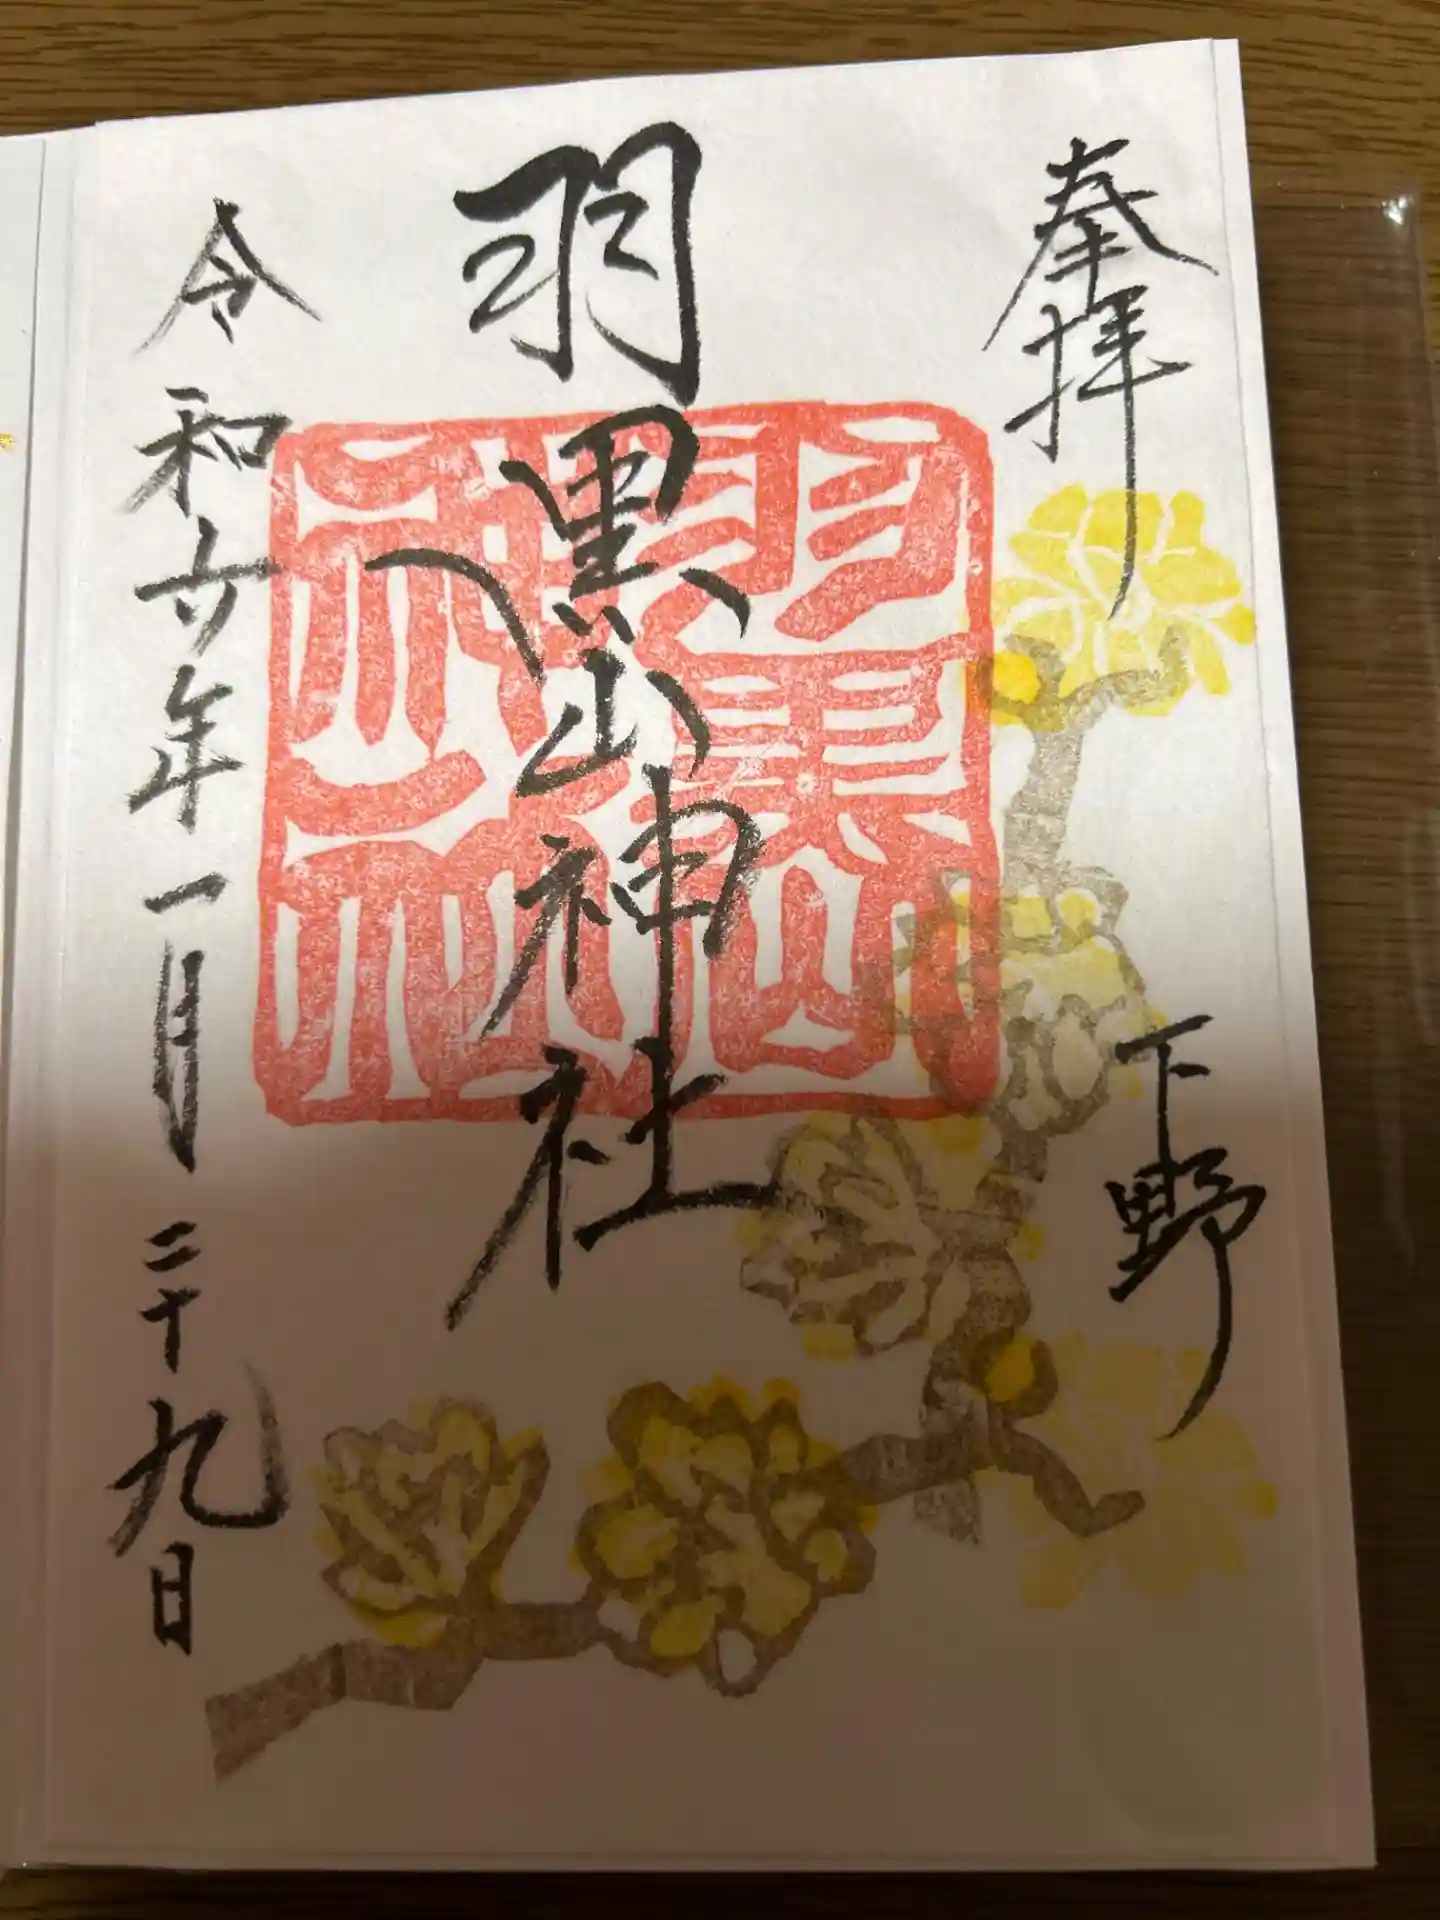 奉拝
下野
羽黒山神社
羽黒山神社
令和六年一月二十九日